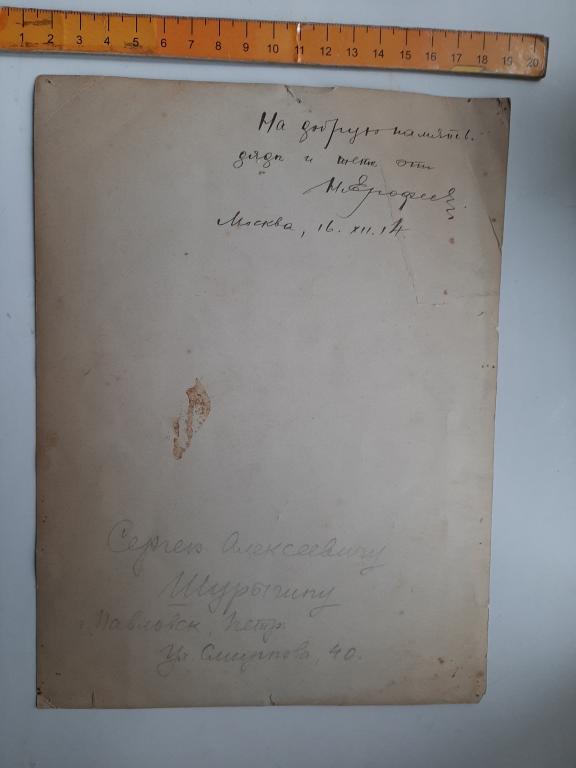 1 2 3 4 5 6 7 8 9 10 11 12 13 14 15 16 17 18 19 20
На добрую память
дяде и тете от
Н. Ерофее
Москва, 16. XII. 14
Сергею Алексеевичу
Шурыгину
г. Павловск, Петр.
Ул. Смирнова, 40.